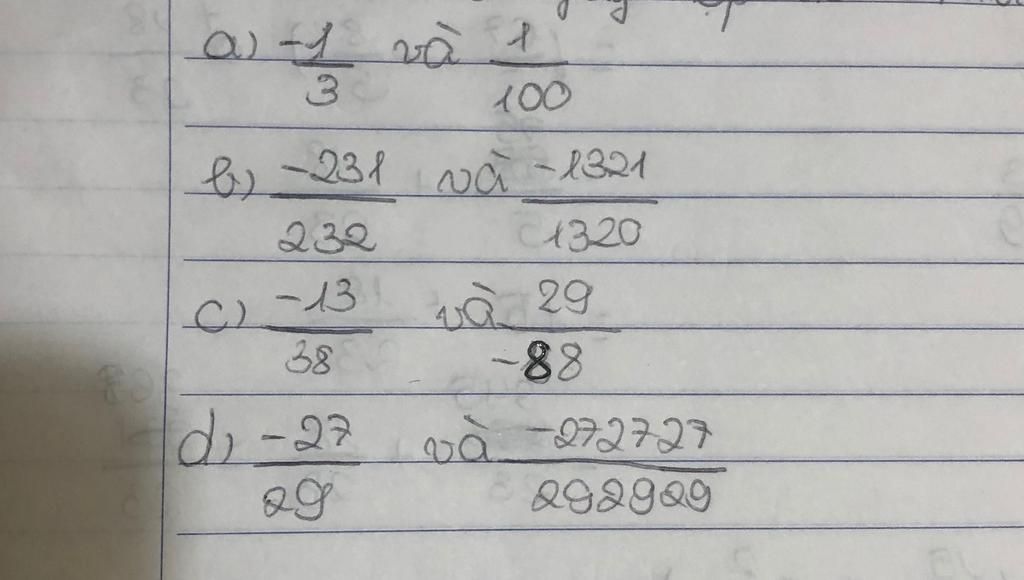 a) -1/3 và 1/100
b) -231/232 và -1321/1320
c) -13/38 và 29/-88
d) -27/29 và -272727/292929